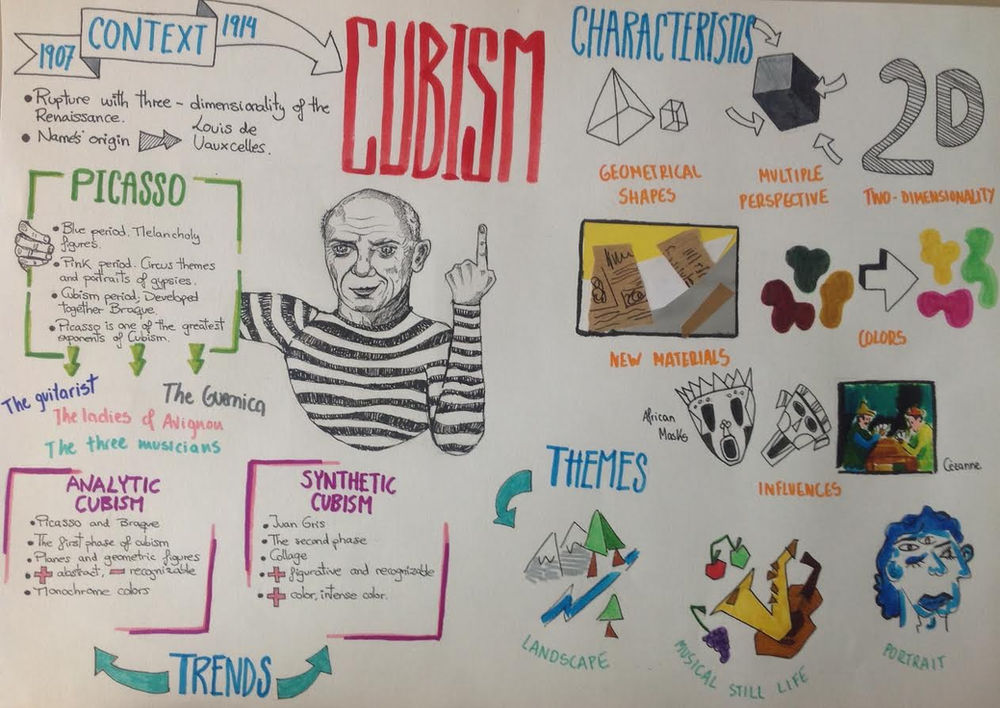 1907
CONTEXT
1914
• Rupture with three-dimensionality of the
Renaissance.
• Name's origin
Louis de
Vauxcelles.
CUBISM
PICASSO
• Blue period. Melancholy
figures.
• Pink period. Circus themes
and portraits of gypsies.
• Cubism period, Developed
together Braque.
• Picasso is one of the greatest
exponents of Cubism.
The guitarist
The Guernica
The ladies of Avignon
The three musicians
ANALYTIC
CUBISM
• Picasso and Braque
• The first phase of cubism
• Planes and geometric figures
• + abstract, - recognizable
• Monochrome colors
SYNTHETIC
CUBISM
• Juan Gris
• The second phase
• Collage
• + figurative and recognizable
• + color, intense color.
TRENDS
CHARACTERISTIS
2D
GEOMETRICAL
SHAPES
MULTIPLE
PERSPECTIVE
TWO-DIMENSIONALITY
NEW MATERIALS
COLORS
African
Masks
Cézanne
INFLUENCES
THEMES
LANDSCAPE
MUSICAL STILL LIFE
PORTRAIT